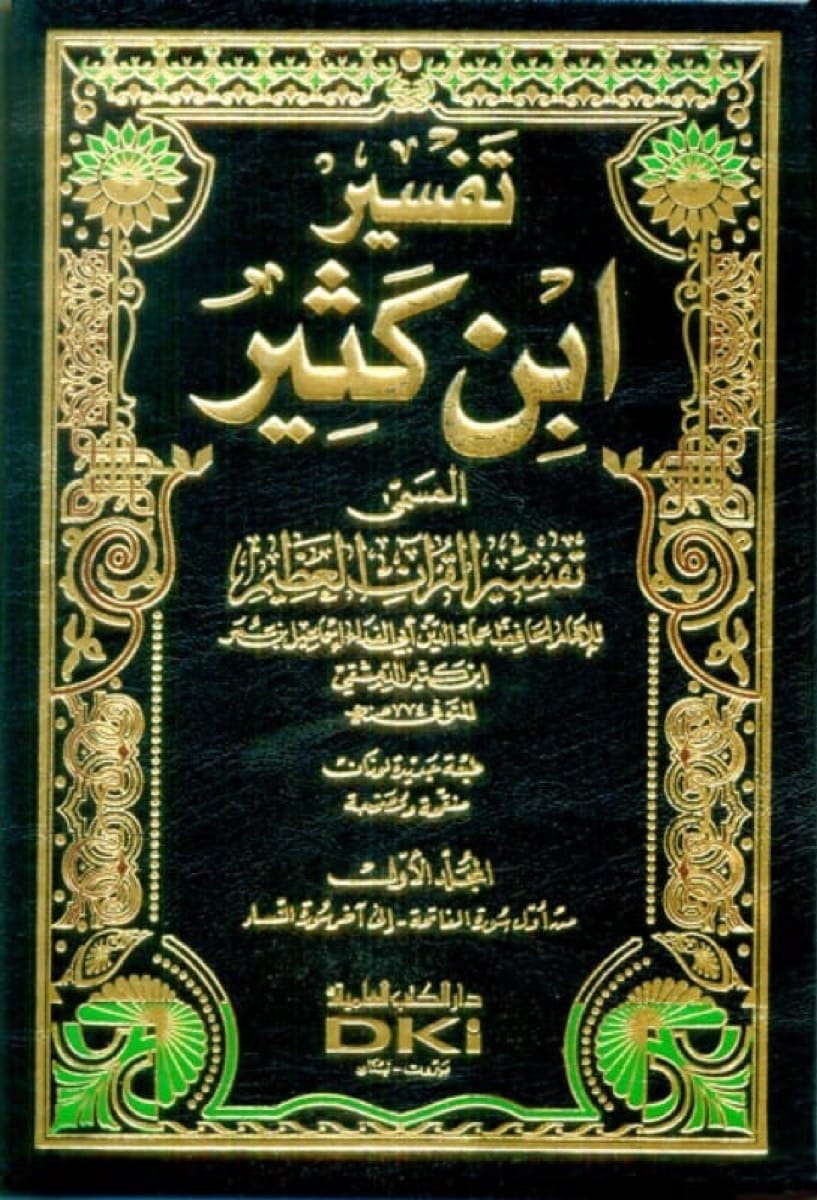 تَفْسِيرُ
ابْنِ كَثِيرٍ
المسمّى
تفسير القرآن العظيم
للإمام الحافظ عماد الدين أبي الفداء إسماعيل بن عمر
ابن كثير الدمشقي
المتوفى ٧٧٤ هـ
طبعة جديدة لونان
منقحة ومصححة
المجلّد الأول
من أول سورة الفاتحة - إلى آخر سورة النساء
دار الكتب العلمية
DKi
بيروت - لبنان